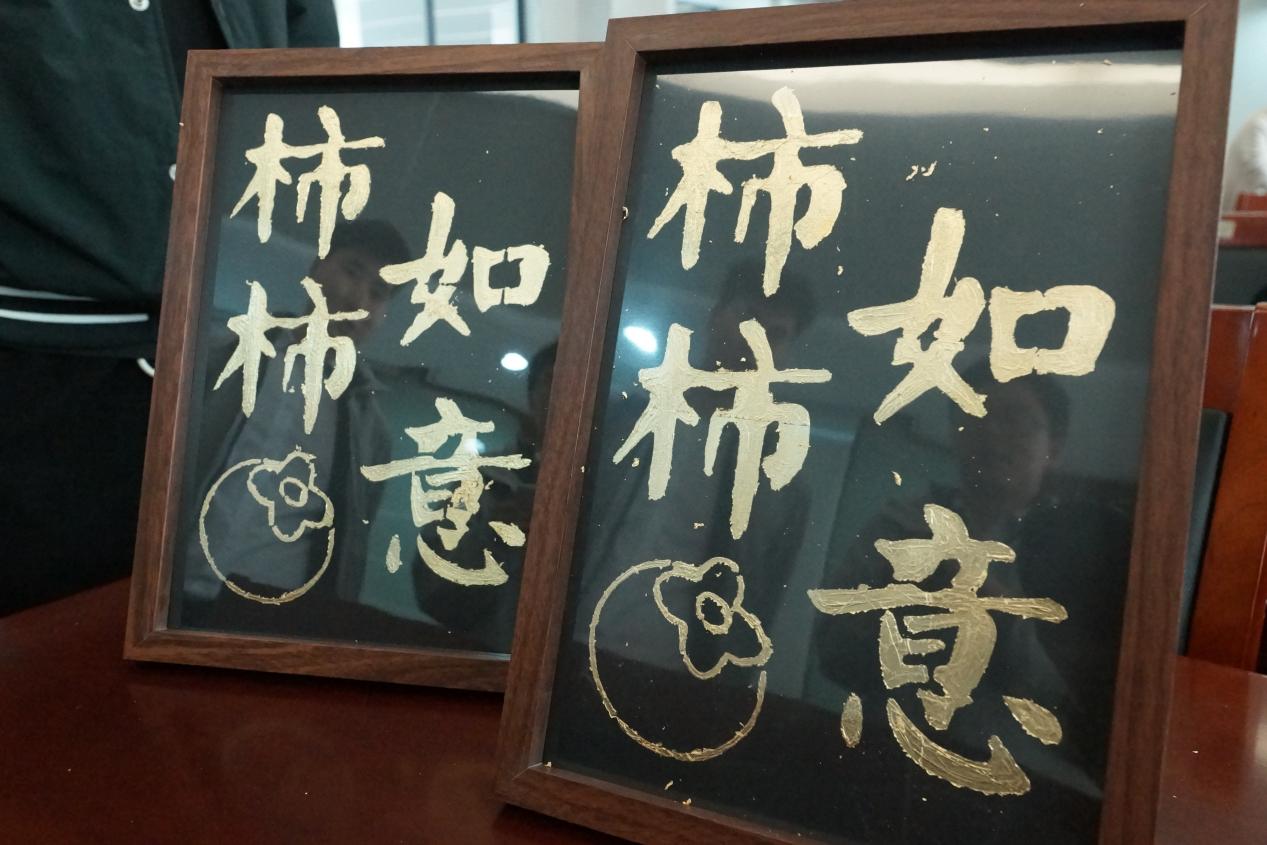 柿柿
如意
柿柿
如意